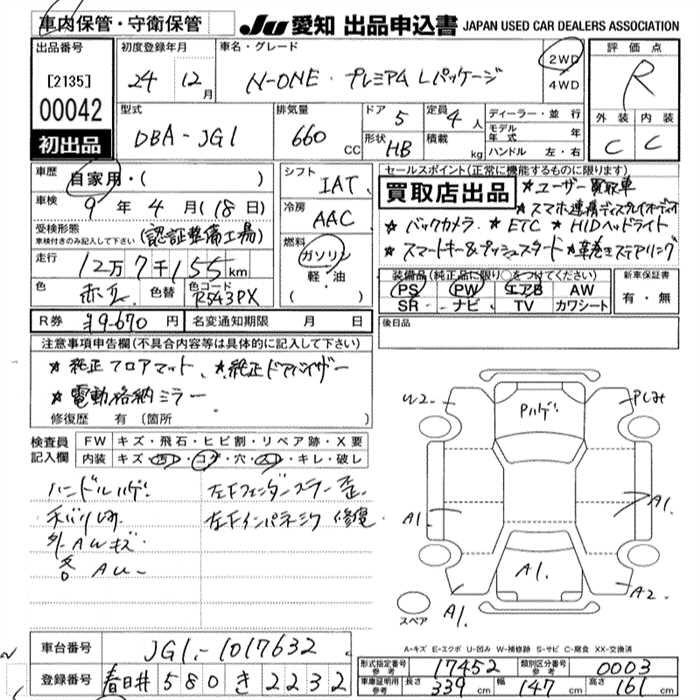 車内保管・守衛保管 JU 愛知 出品申込書 JAPAN USED CAR DEALERS ASSOCIATION
出品番号 [2135] 00042 初出品
初度登録年月 24 年 12 月
車名・グレード N-ONE・プレミアム Lパッケージ
2WD 4WD
評価点 R
外装 内装
C C
型式 DBA-JG1
排気量 660 CC
ドア 5 定員 4 人
形状 HB 積載 kg
ディーラー・並行
モデル年式 年
ハンドル 左・右
車歴 自家用・( )
車検 9 年 4 月 (18 日)
受検形態 車検付きのみ記入して下さい (認証整備工場)
走行 12万7千155 km
色 色替 色コード R543PX
シフト IAT
冷房 AAC
燃料 ガソリン 軽・油 ( )
セールスポイント(正常に機能するものに限ります)
買取店出品 ★ユーザー買取車
★スマホ連携ディスプレイオーディオ
★バックカメラ ★ETC ★HIDヘッドライト
★スマートキー&プッシュスタート ★革巻きステアリング
装備品(純正品に限り○をつけてください)
PS PW エアB AW
SR ナビ TV カワシート
新車保証書 有・無
R券 ¥9670 円 名変通知期限 月 日
後日品
注意事項申告欄(不具合内容等は具体的に記入して下さい)
★純正フロアマット、★純正ドアバイザー
★電動格納ミラー
修復歴 有 (箇所
検査員記入欄 FW キズ・飛石・ヒビ割・リペア跡・X要
内装 キズ・汚レ・コゲ・穴・スレ・キレ・破レ
ハンドルハゲ
左Fフェンダーステー歪
左Fインパネジク 修復
外AWキズ
W2 Pハゲ
A1 A1
A1 A2
スペア A1
A-キズ E-エクボ U-凹み W-補修跡 S-サビ C-腐食 XX-交換済
車台番号 JG1-1017632
登録番号 春日井 580 き 2232
形式指定番号 参考 17452 類別区分番号 参考 0003
車庫証明用 参考 長さ 339 cm 幅 147 cm 高さ 161 cm